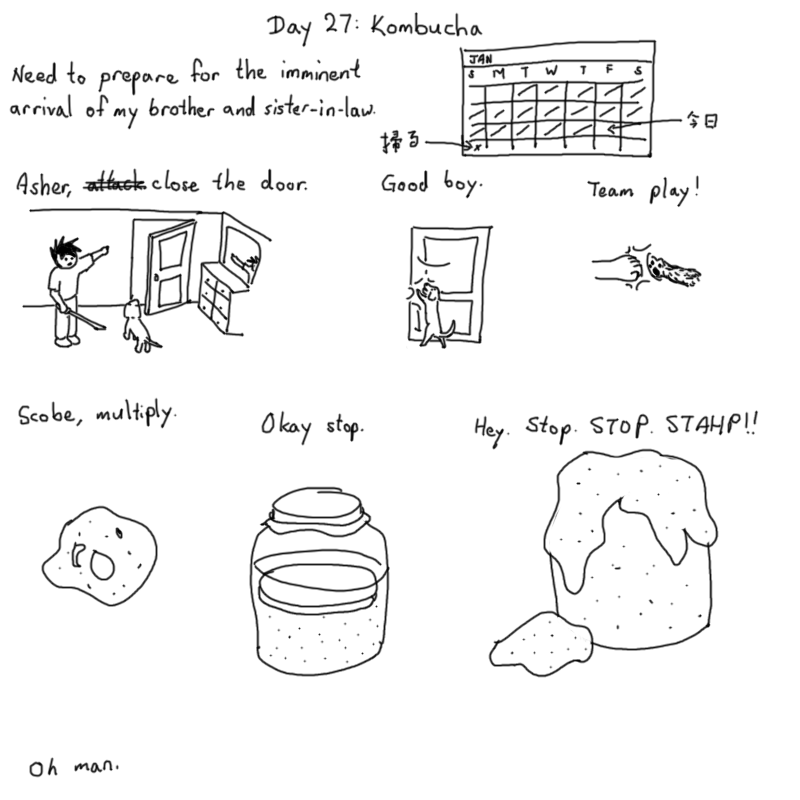 Day 27: Kombucha
Need to prepare for the imminent
arrival of my brother and sister-in-law.
JAN
S M T W T F S
今日
掃る
Asher, attack close the door.
Good boy.
Team play!
Scobe, multiply.
Okay stop.
Hey. Stop. STOP. STAHP!!
Oh man.